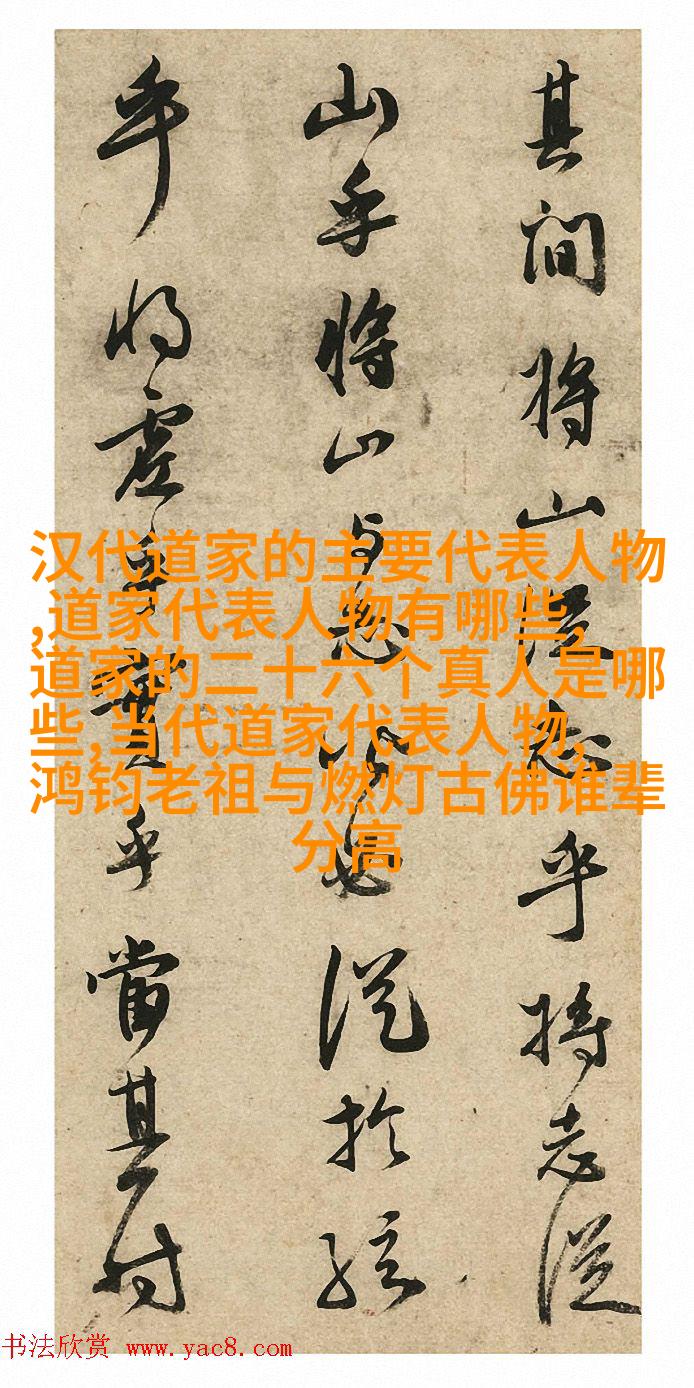 其間将山從志乎将志從
山乎将山与志於絃
乎将虚乎實乎當其付
汉代道家的主要代表人物
,道家代表人物有哪些,
道家的二十六个真人是哪
些,当代道家代表人物,
鸿钧老祖与燃灯古佛谁辈
分高
书法欣赏 www.yac8.com